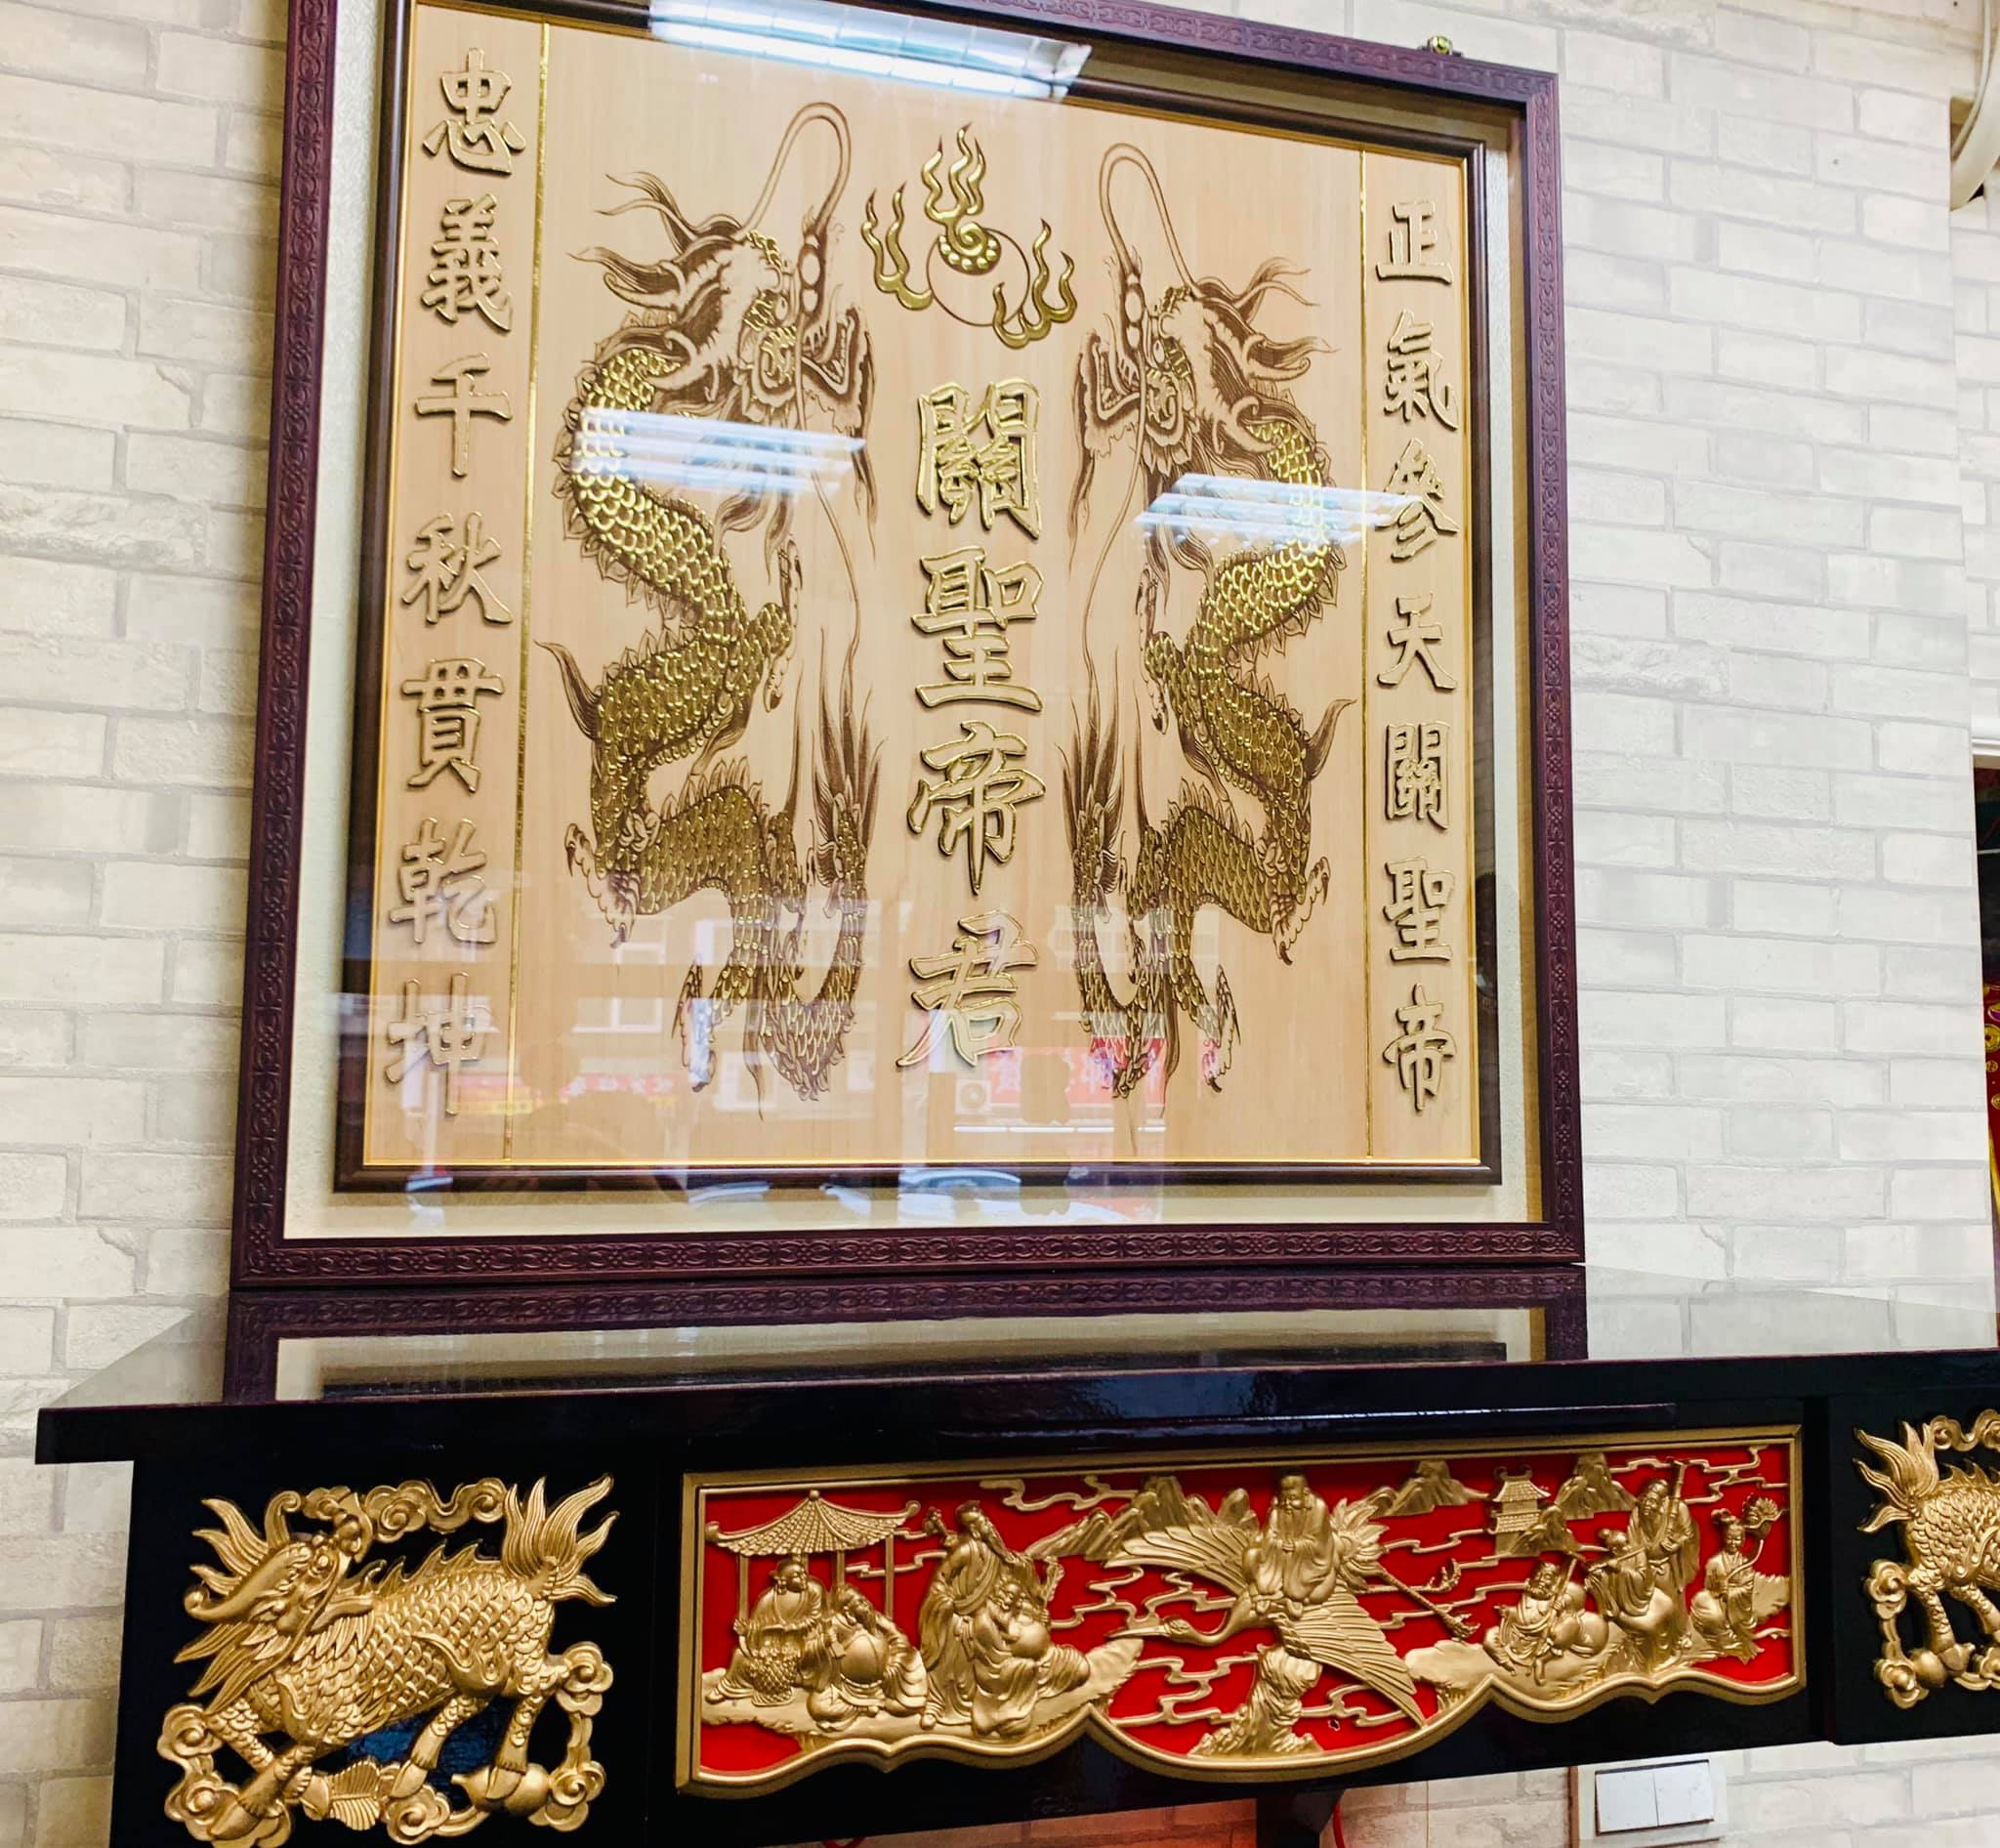 正氣參天關聖帝
關聖帝君
忠義千秋貫乾坤